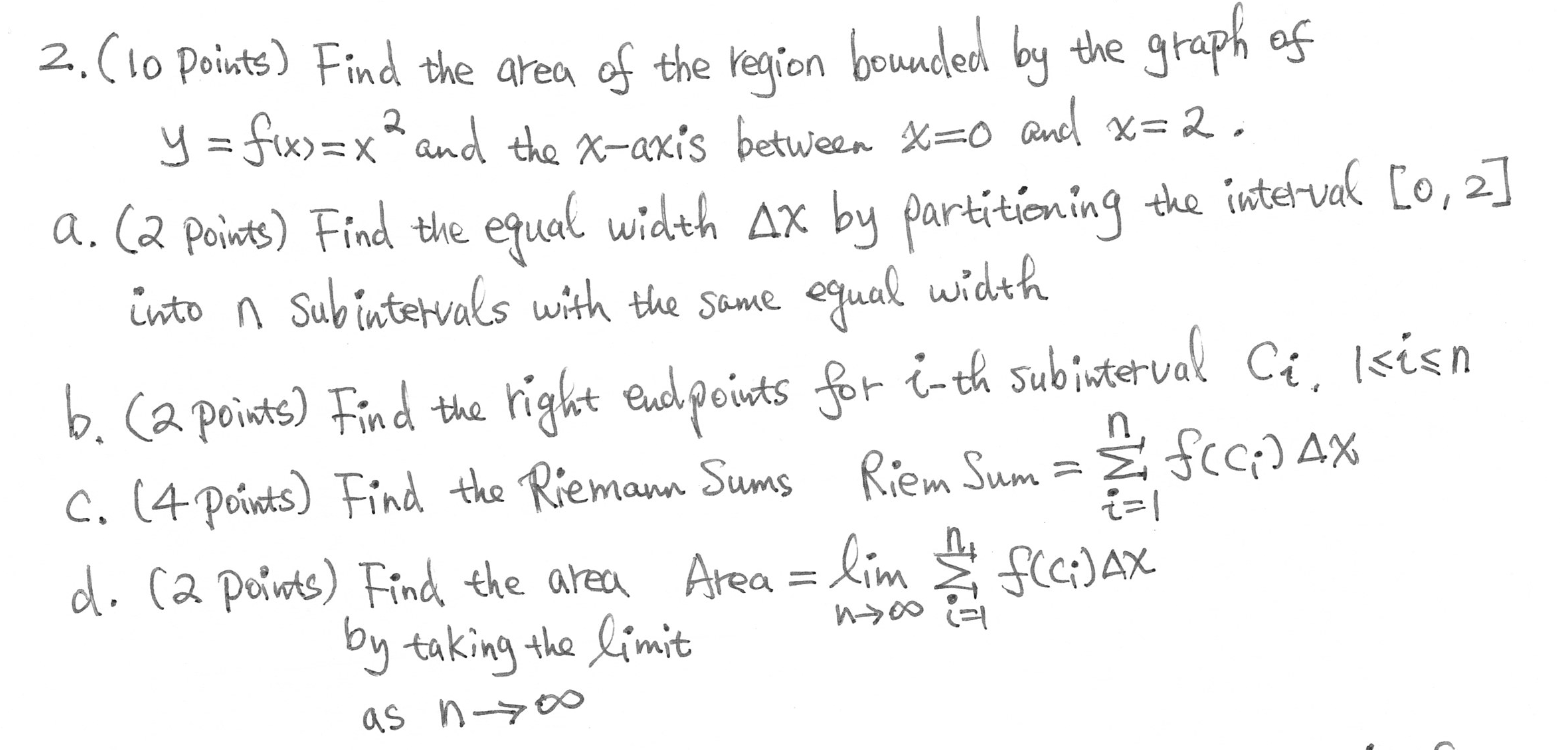 2. (10 points) Find the area of the region bounded by the graph of
y = f(x) = x² and the x-axis between x=0 and x=2.
a. (2 points) Find the equal width Δx by partitioning the interval [0, 2]
into n subintervals with the same equal width
b. (2 points) Find the right endpoints for i-th subinterval Ci, 1≤i≤n
c. (4 points) Find the Riemann Sums Riem Sum = ∑_{i=1}^{n} f(Ci) Δx
d. (2 points) Find the area Area = lim_{n→∞} ∑_{i=1}^{n} f(Ci) Δx
by taking the limit
as n→∞